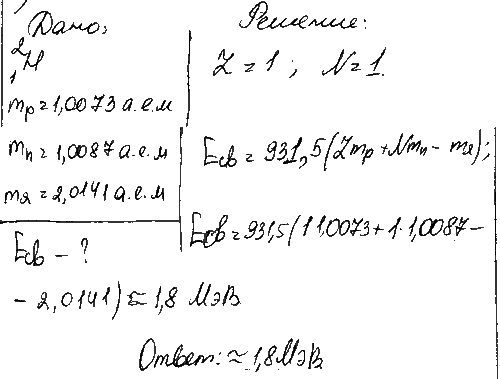 Дано:
²₁H
mp = 1,0073 а.е.м
mn = 1,0087 а.е.м
mя = 2,0141 а.е.м
Eсв - ?
Решение:
Z = 1 ; N = 1.
Eсв = 931,5(Zmp + Nmn - mя);
Eсв = 931,5(1 1,0073 + 1·1,0087 -
- 2,0141) ≈ 1,8 МэВ
Ответ: ≈ 1,8 МэВ